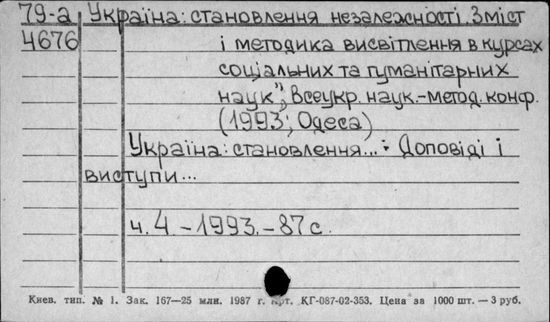 79-а Україна: становлення незалежності. Зміст
4676 і методика висвітлення в курсах
соціальних та гуманітарних
наук", Всеукр. наук.-метод. конф.
(1993; Одеса)
Україна: становлення... : Доповіді і
виступи...
ч. 4 - 1993. - 87 с.
Киев. тип. № 1. Зак. 167—25 млн. 1987 г. Арт. КГ-087-02-353. Цена за 1000 шт. — 3 руб.